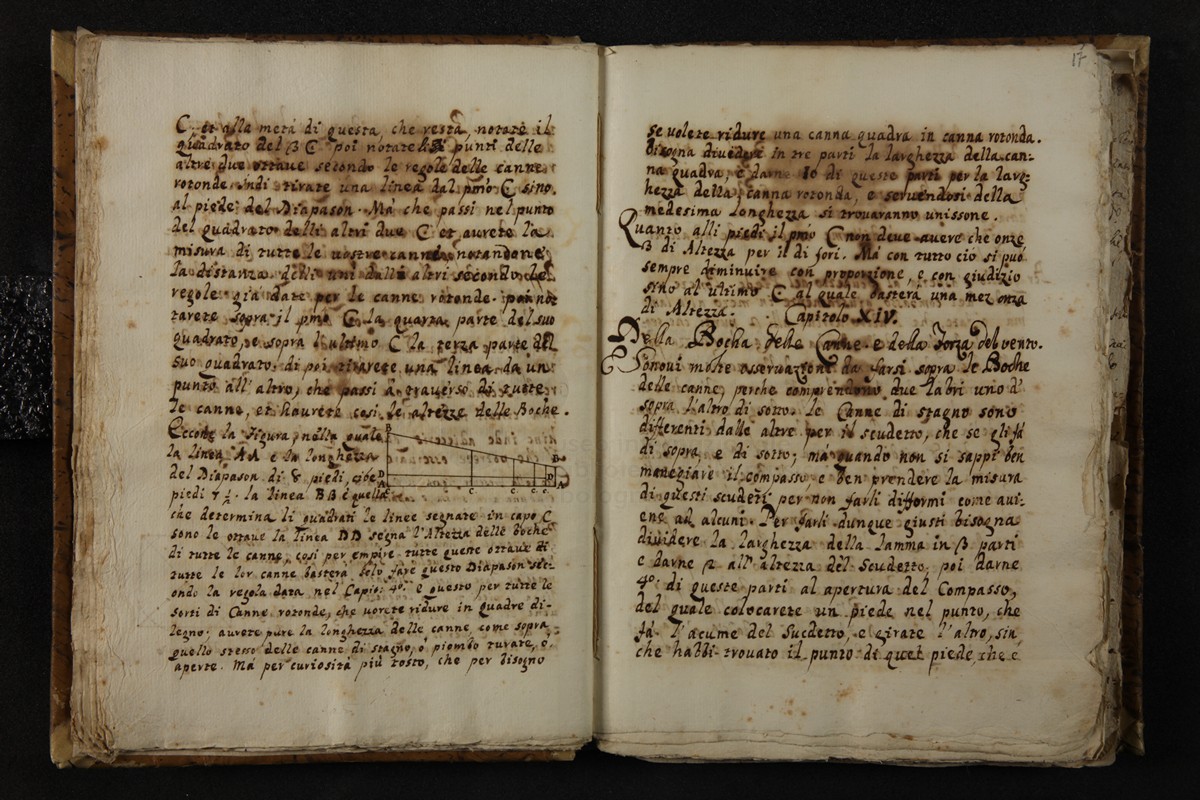 C et alla metà di questa, che resta, notate il
quadrato del 3 C poi notate li punti delle
altre due ottave secondo le regole delle canne
rotonde indi tirate una linea dal pmo C sino
al piede del Diapason. Mà che passi nel punto
del quadrato delli altri due C et aurete la
misura di tutte le vostre canne notandone
la distanza delli uni dalli altri secondo le
regole già date per le canne rotonde. poi no-
tarete sopra il pmo C la quarta parte del suo
quadrato, e sopra l'ultimo C la terza parte del
suo quadrato, di poi tirarete una linea da un
punto all'altro, che passi à trauerso di tutte
le canne, et haurete così le altezze delle Boche.
Eccone la Figura, nella quale
la linea AA è la longhezza
del Diapason di 8 piedi, cioè
piedi 7 1/2. la linea BB è quella
che determina li quadrati le linee segnate in capo C
sono le ottaue la linea DD segna l'Altezza delle Boche
di tutte le canne, così per empire tutte queste ottaue di
tutte le lor canne basterà solo fare questo Diapason sec-
ondo la regola data nel Capio: 4º. e questo per tutte le
sorti di Canne rotonde, che uorete ridure in quadre di
legno; aurete pure la longhezza delle canne come sopra,
quello stesso delle canne di stagno, ò piombo turate, ò
aperte. Mà per curiosità più tosto, che per bisogno
B
D
A
C
C
C
C
B
D
A
17
se uolete ridure una canna quadra in canna rotonda.
Bisogna diuidere in tre parti la larghezza della can-
na quadra, e darne 10 di queste parti per la larg-
hezza della canna rotonda, e seruendosi della
medesima longhezza si trouaranno unissone.
Quanto alli piedi il pmo C non deve auere che onze
8 di Altezza per il di fori. Mà con tutto ciò si può
sempre diminuire con proporzione, e con giudizio
sino al ultimo C al quale basterà una mez onza
di Altezza. Capitolo XIV.
Della Bocha delle Canne e della Forza del vento.
Sonoui molte osseruazioni da farsi sopra le Boche
delle canne, perche comprendono due labri uno di
sopra l'altro di sotto. le Canne di stagno sono
differenti dalle altre per il scudetto, che se gli fà
di sopra e di sotto; mà quando non si sappi ben
manegiare il compasso, e ben prendere la misura
di questi scudeti per non farli difformi come aui-
ene ad alcuni. Per farli dunque giusti bisogna
diuidere la larghezza della lamma in 3 parti
e darne 2 all'altezza del Scudetto, poi darne
4º. di queste parti al apertura del Compasso,
del quale colocarete un piede nel punto, che
fà l'acume del Sucdetto, e girate l'altro, sin
che habbi trouato il punto di quel piede, che è